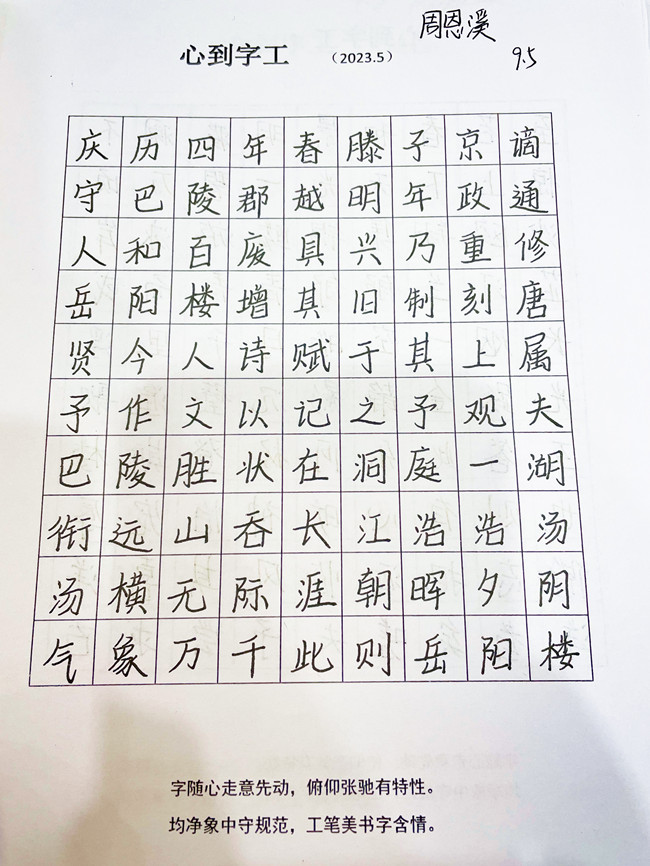 周恩溪
心到字工 (2023.5)
9.5
庆历四年春滕子京谪
守巴陵郡越明年政通
人和百废具兴乃重修
岳阳楼增其旧制刻唐
贤今人诗赋于其上属
予作文以记之予观夫
巴陵胜状在洞庭一湖
衔远山吞长江浩浩汤
汤横无际涯朝晖夕阴
气象万千此则岳阳楼
字随心走意先动，俯仰张驰有特性。
均净象中守规范，工笔美书字含情。